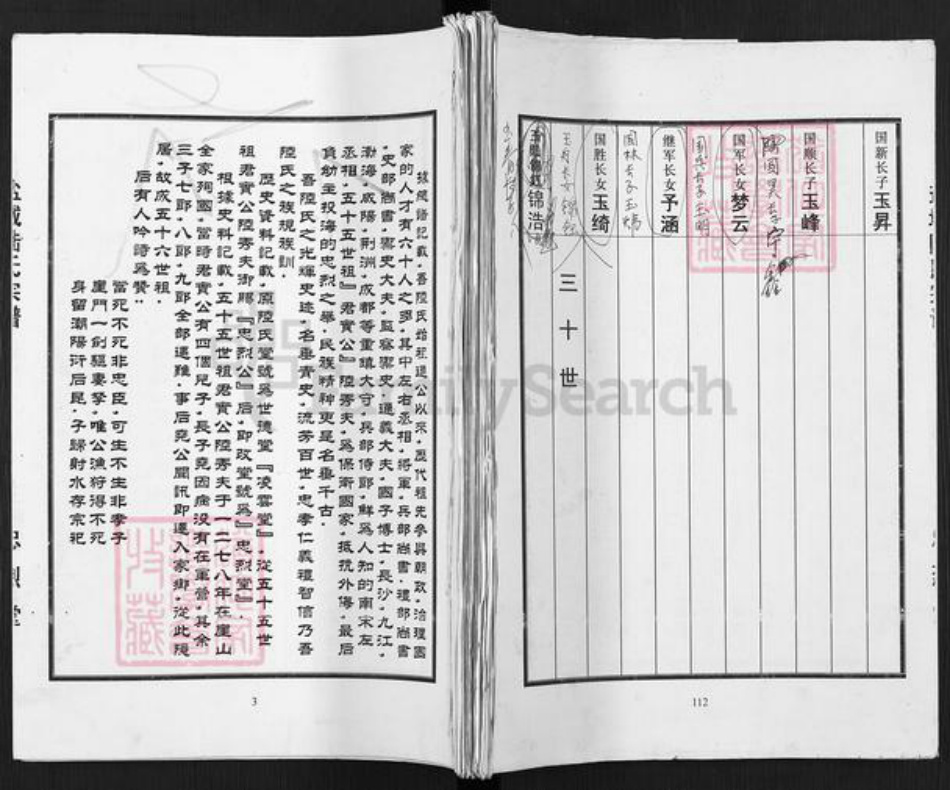 国新长子玉昇
国顺长子玉峰
国军长女梦云
继军长女予涵
国林长子玉
国胜长女玉绮
锦浩
三十世
112
據總譜記載，吾陸氏始祖通公以來，歷代祖先參與朝政，治理國
家的人才有六十人之多，其中左右丞相，將軍，兵部尚書，禮部尚書
，吏部尚書，禦史大夫，監察禦史，通義大夫，國子博士，長沙，九江，
渤海，咸陽，荆洲，成都等重鎮大守，兵部侍郎，鮮爲人知的南宋左
丞相，五十五世祖『君實公』陸秀夫，爲保衛國家，抵抗外侮，最后
負幼主投海的忠烈之舉，民族精神更是名垂千古。
吾陸氏之光輝史迹，名垂青史，流芳百世，忠孝仁義禮智信乃吾
陸氏之族規族訓。
歷史資料記載，原陸氏堂號爲世德堂『凌雲堂』，從五十五世
祖君實公陸秀夫御賜『忠烈公』后，即改堂號爲『忠烈堂』。
根據史料記載，五十五世祖君實公陸秀夫于一二七八年在崖山
全家殉國，當時君實公有四個兒子，長子堯因病没有在軍營，其余
三子七郎，八郎，九郎全部遇難，事后堯公聞訊即遷入家鄉，從此隐
居，故成五十六世祖。
后有人吟詩爲贊：
當死不死非忠臣，可生不生非孝子
崖門一劍驅妻孥，唯公漁狩得不死
身留潮陽衍后昆，子歸射水存宗祀
3
FamilySearch